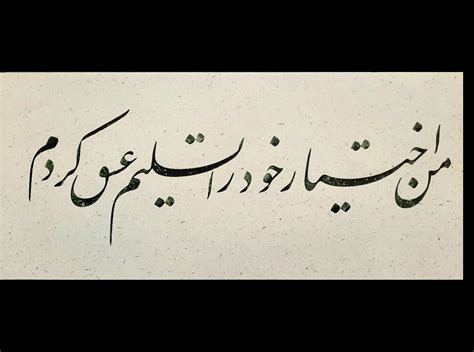 من اختیار خود را تسلیم عشق کردم